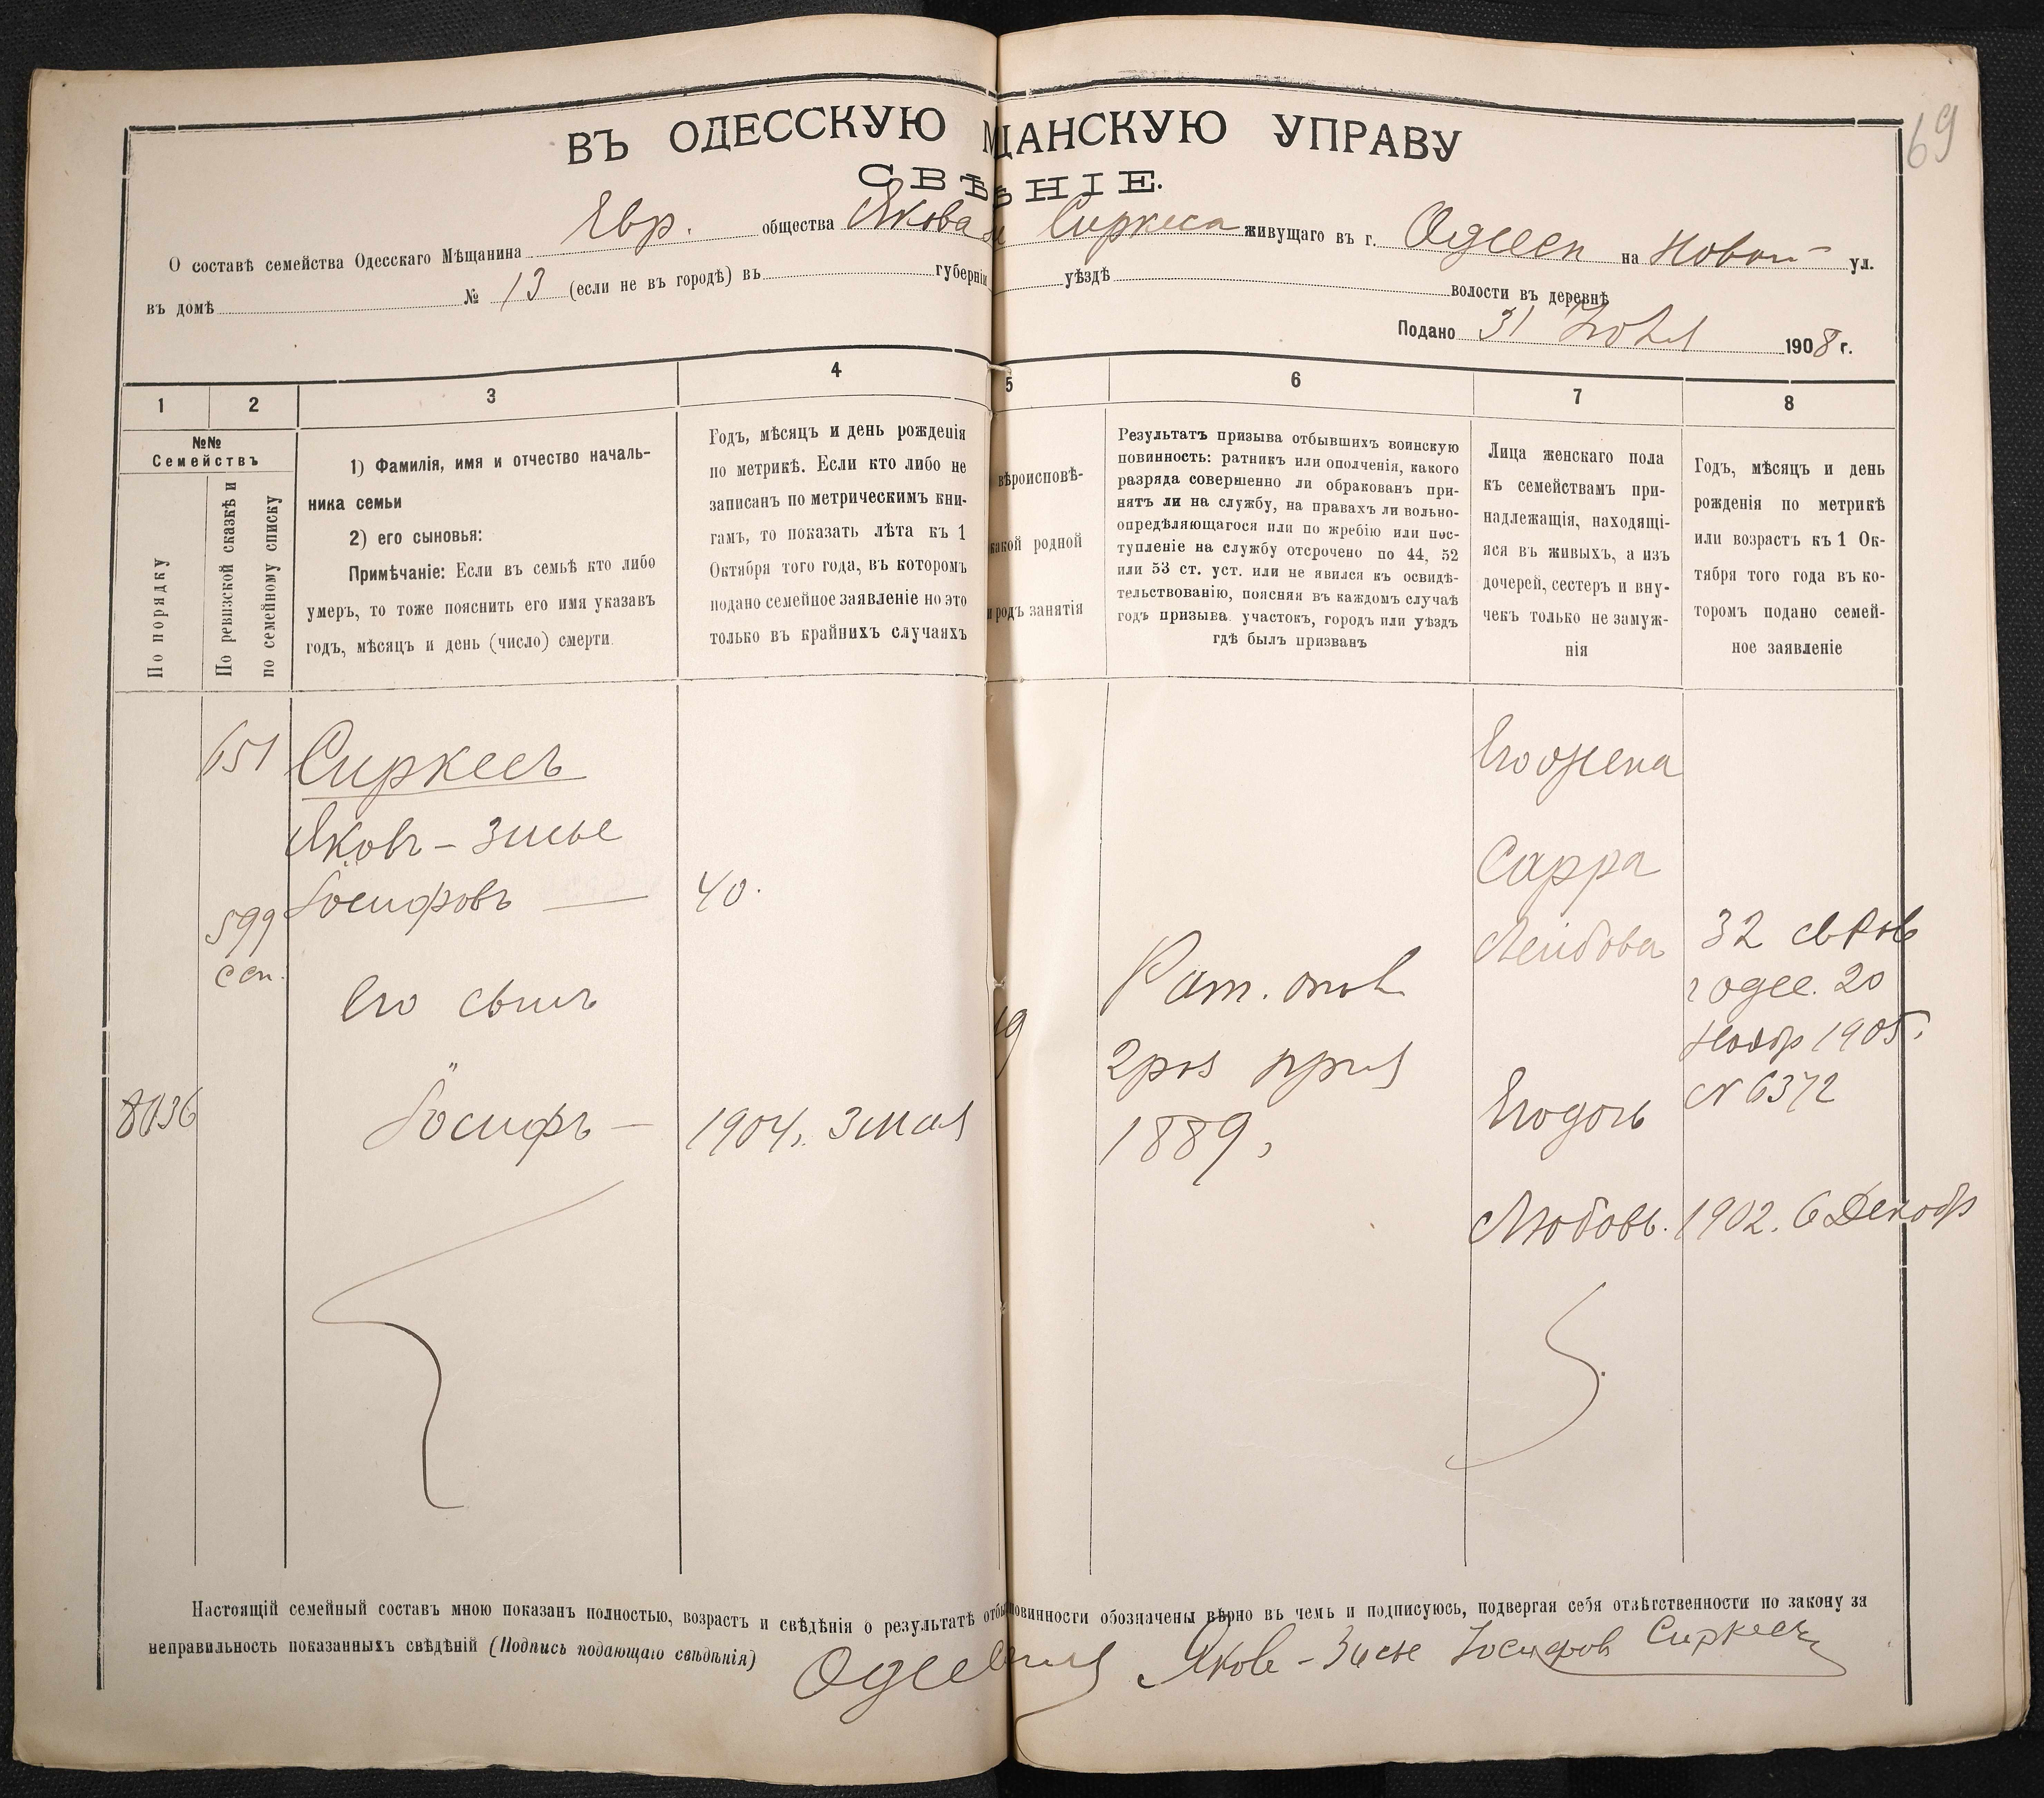 69
ВЪ ОДЕССКУЮ МЩАНСКУЮ УПРАВУ
СВѢНІЕ.
О составѣ семейства Одесскаго Мѣщанина Евр. общества Якова Сиркеса живущаго въ г. Одессѣ на Новой ул.
въ домѣ № 13 (если не въ городѣ) въ губерніи уѣздѣ волости въ деревнѣ
Подано 31 Іюля 1908 г.
1 2 3 4 5 6 7 8
№№
Семействъ
По порядку
По ревизской сказкѣ и
по семейному списку
1) Фамилія, имя и отчество началь-
ника семьи
2) его сыновья:
Примѣчаніе: Если въ семьѣ кто либо
умеръ, то тоже пояснить его имя указавъ
годъ, мѣсяцъ и день (число) смерти.
Годъ, мѣсяцъ и день рожденія
по метрикѣ. Если кто либо не
записанъ по метрическимъ кни-
гамъ, то показать лѣта къ 1
Октября того года, въ которомъ
подано семейное заявленіе но это
только въ крайнихъ случаяхъ
вѣроисповѣ-
какой родной
и родъ занятія
Результатъ призыва отбывшихъ воинскую
повинность: ратникъ или ополченія, какого
разряда совершенно ли обракованъ при-
нятъ ли на службу, на правахъ ли вольно-
опредѣляющагося или по жребію или пос-
тупленіе на службу отсрочено по 44, 52
или 53 ст. уст. или не явился къ освидѣ-
тельствованію, поясняя въ каждомъ случаѣ
годъ призыва. участокъ, городъ или уѣздъ
гдѣ былъ призванъ
Лица женскаго пола
къ семействамъ при-
надлежащія, находящі-
яся въ живыхъ, а изъ
дочерей, сестеръ и вну-
чекъ только не замуж-
нія
Годъ, мѣсяцъ и день
рожденія по метрикѣ
или возрастъ къ 1 Ок-
тября того года въ ко-
торомъ подано семей-
ное заявленіе
651
599
сп.
8036
Сиркесъ
Яковъ - Зисье
Іосифовъ —
Его сынъ
Іосифъ —
40.
1904. 3 мая
Рат. опол
2 раз приз
1889,
Его жена
Сарра
Лейбова
Его дочь
Любовь.
32 свѣд
г Одес. 20
Ноябр 1905.
№ 6372
1902. 6 Декабр
Настоящій семейный составъ мною показанъ полностью, возрастъ и свѣдѣнія о результатѣ отбы повинности обозначены вѣрно въ чемъ и подписуюсь, подвергая себя отвѣтственности по закону за
неправильность показанныхъ свѣдѣній (Подпись подающаго свѣдѣнія)
Яковъ - Зисье Іосифовъ Сиркесъ